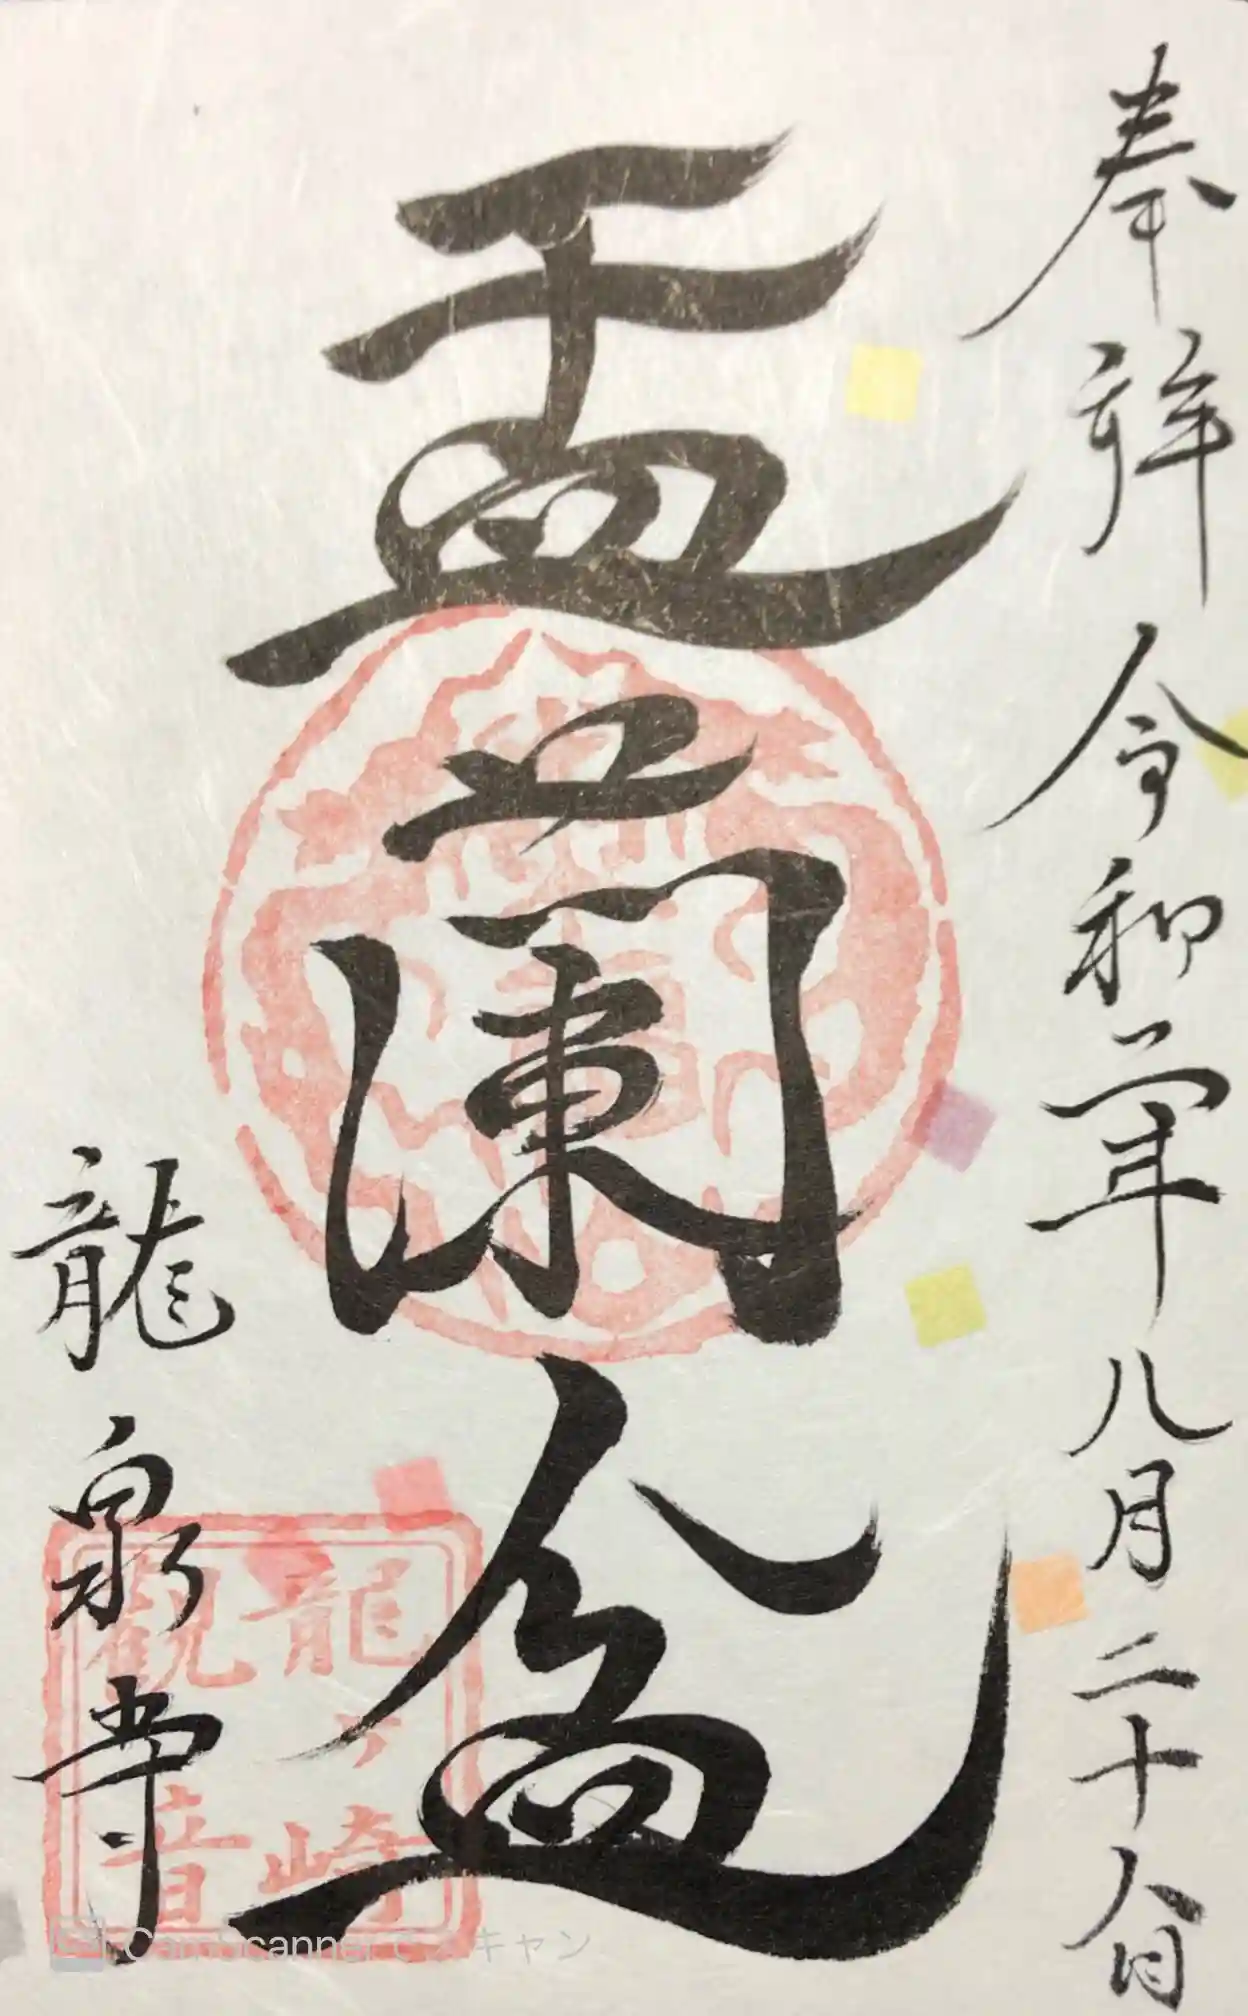 奉拝 令和二年八月二十八日
盂蘭盆
龍泉寺
龍ヶ崎
観音
CamScanner でスキャン